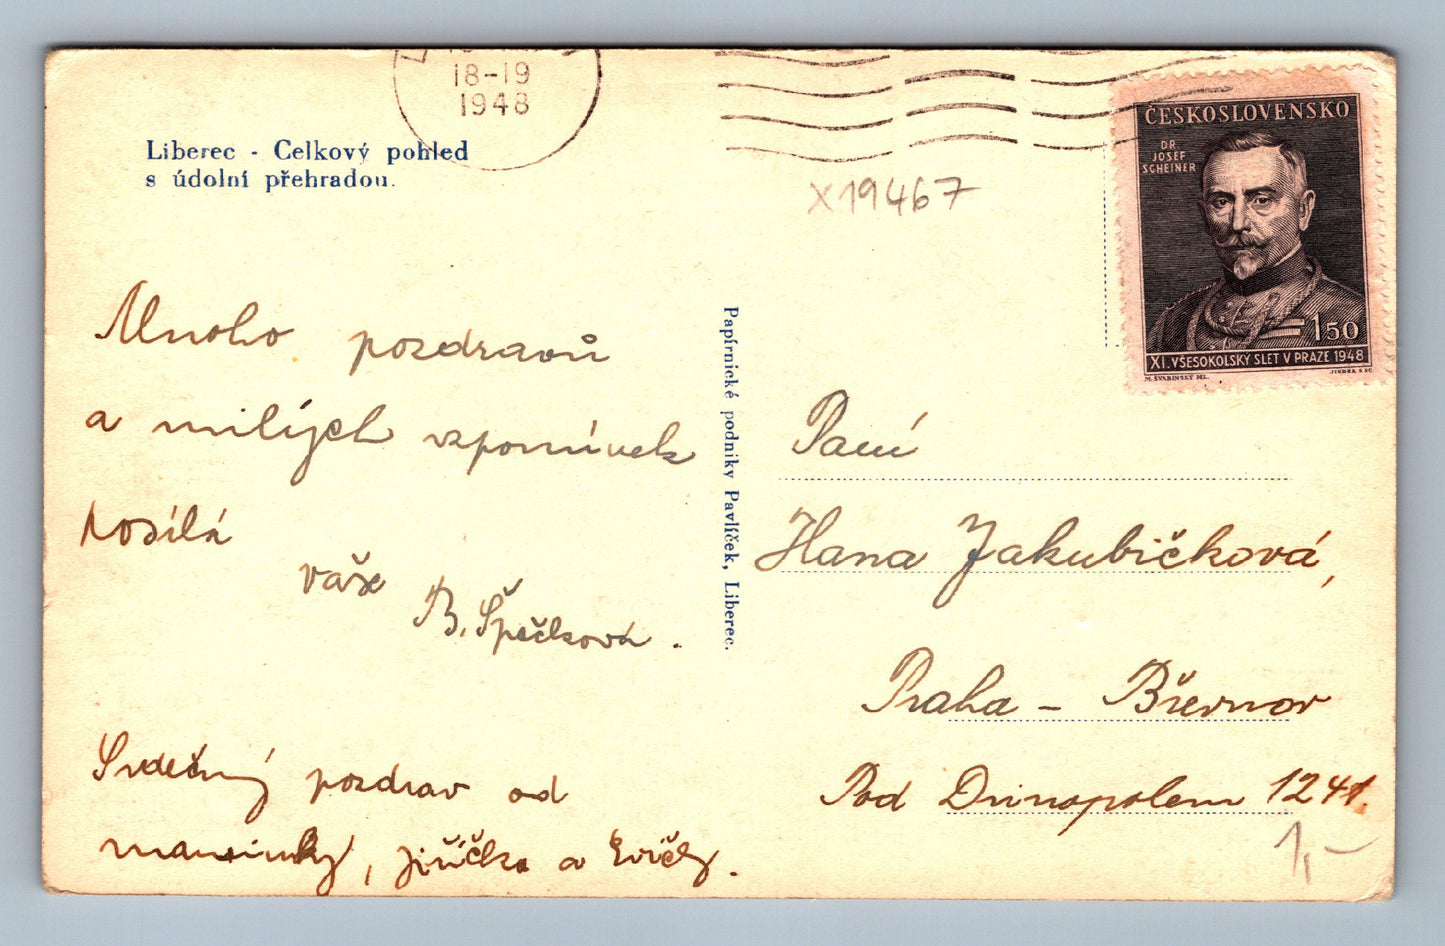 18-19
1948
Liberec - Celkový pohled
s údolní přehradou.
X19467
ČESKOSLOVENSKO
DR.
JOSEF
SCHEINER
1 50
XI. VŠESOKOLSKÝ SLET V PRAZE 1948
M. ŠVABINSKÝ DEL.
JINDRA SC.
Mnoho pozdravů
a milých vzpomínek
posílá
vaše
B. Špečková.
Srdečný pozdrav od
maminky, Jiříčka a Evičky.
Papírnické podniky Pavlíček, Liberec.
Paní
Hana Jakubičková,
Praha - Břevnov
Pod Drinopolem 1241.
1,-